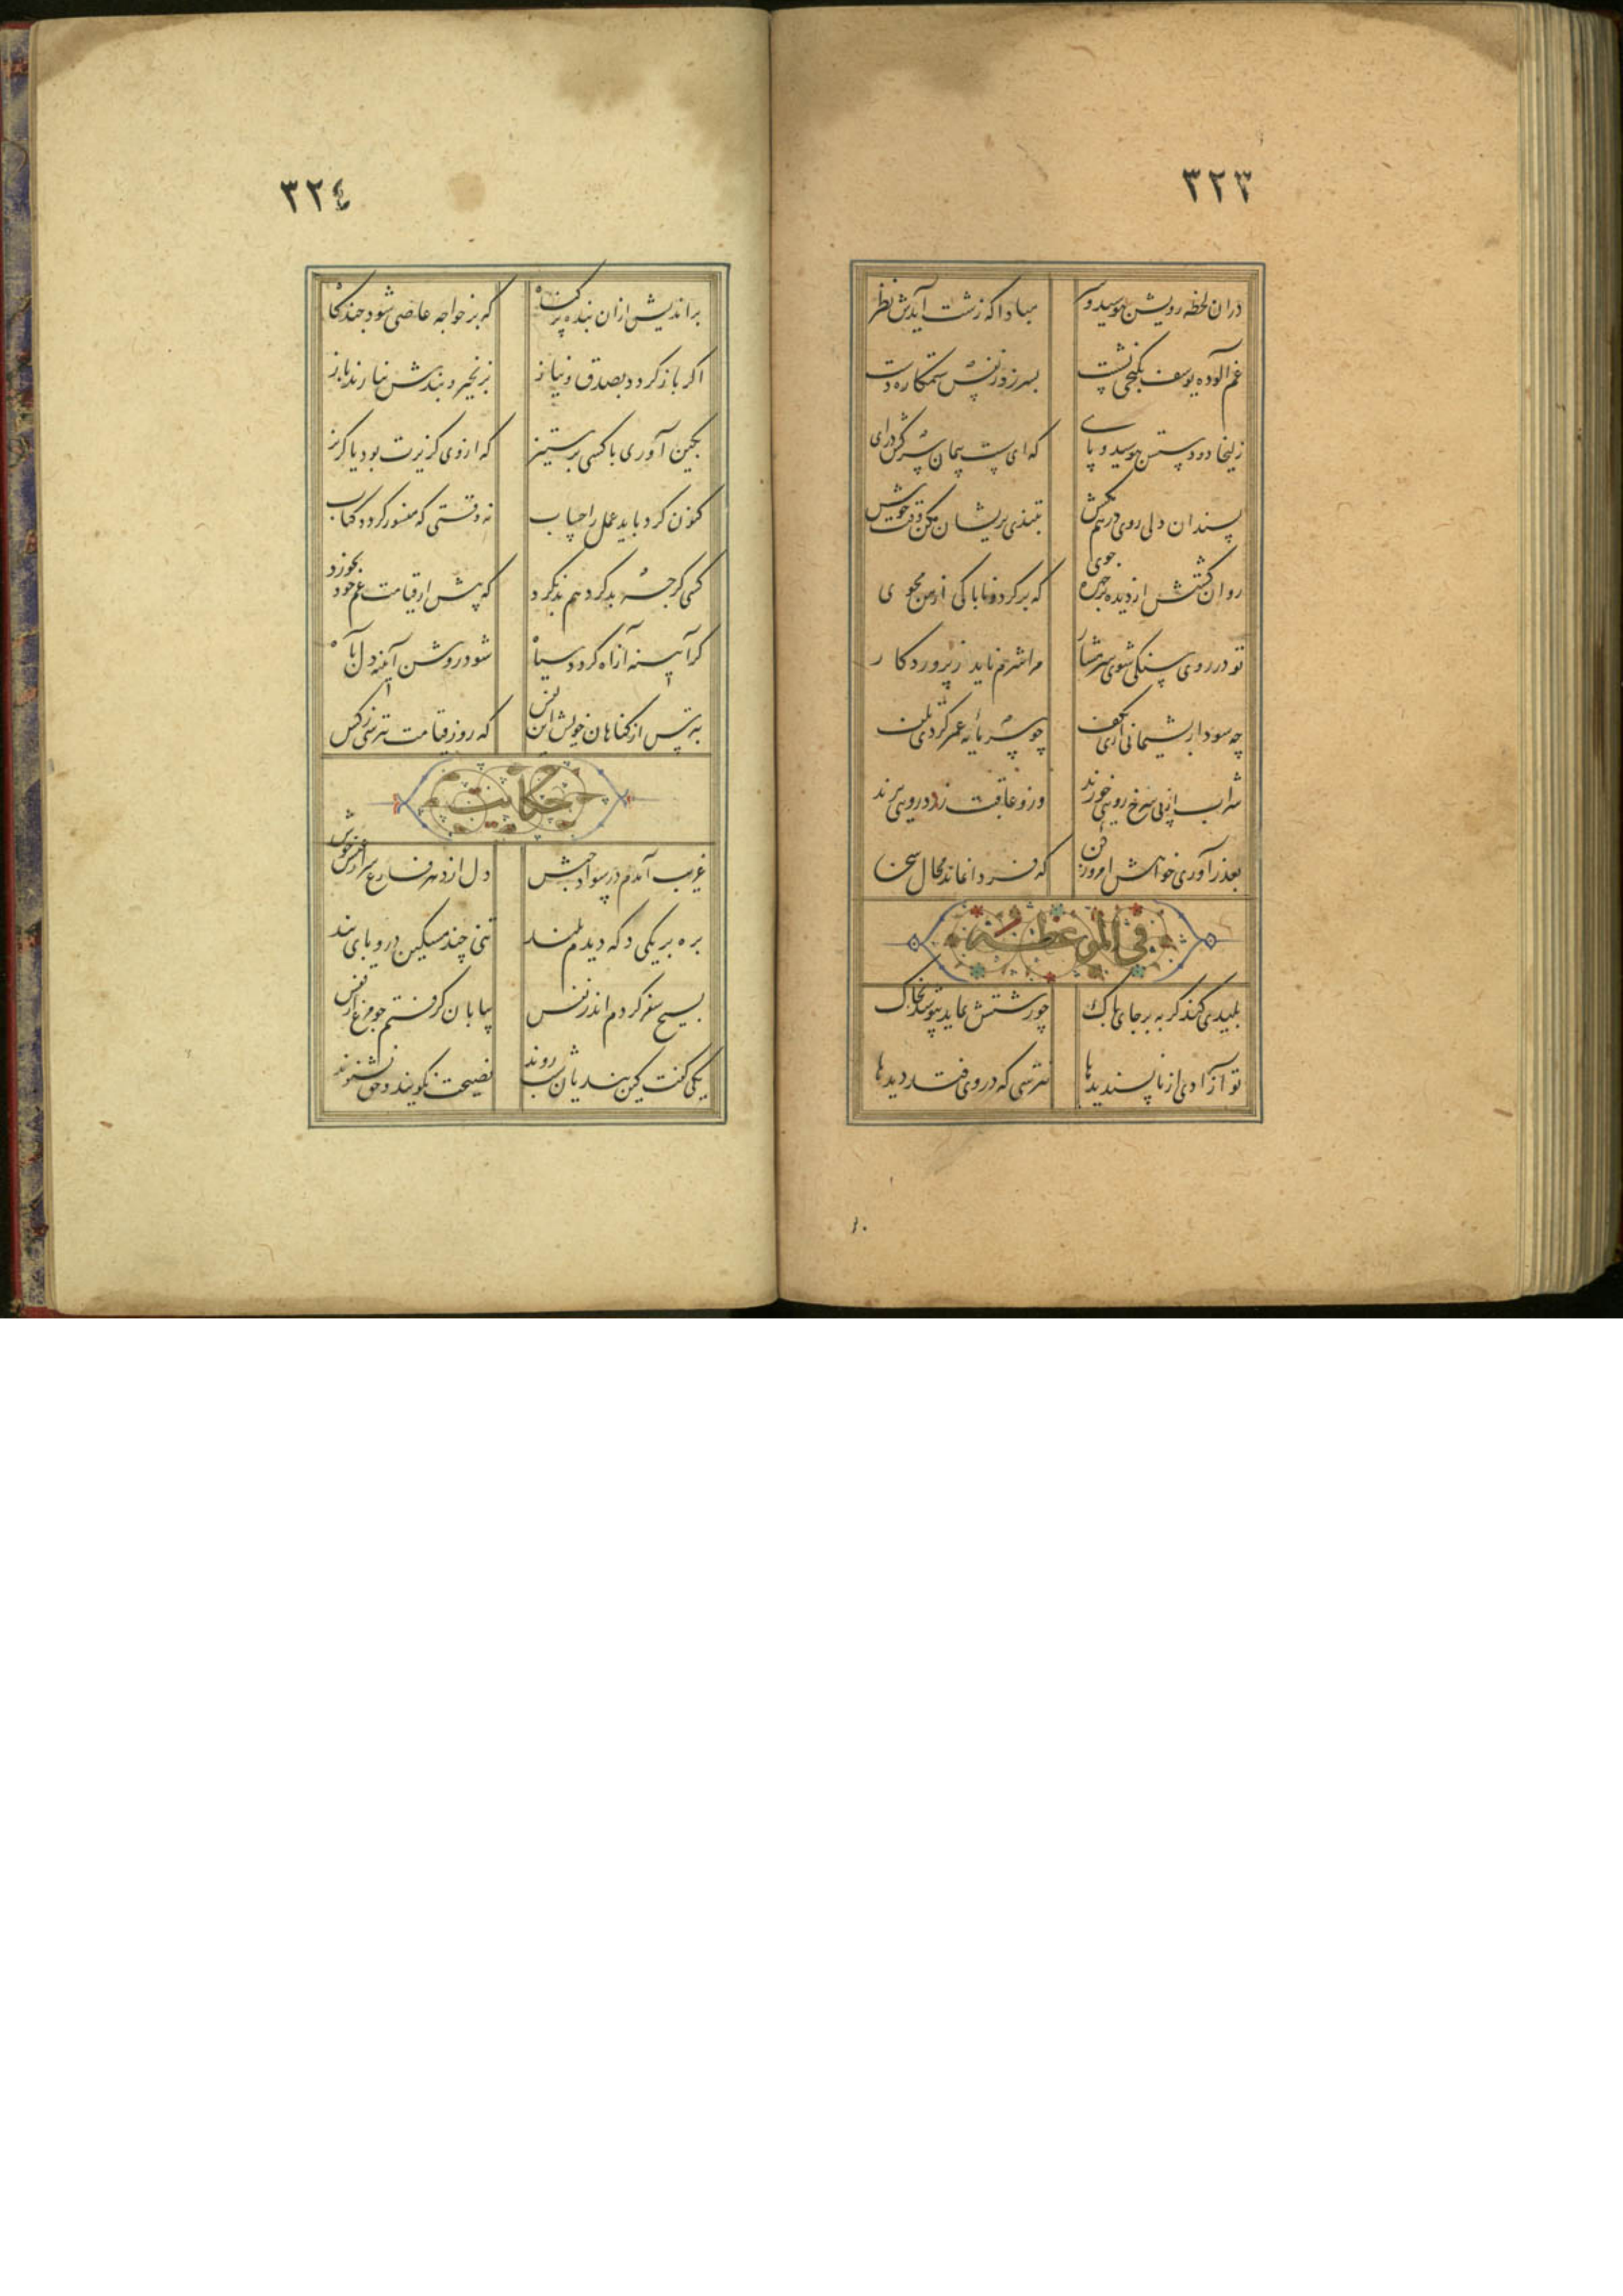 ٣٢٣
دران لحظه رویش بپوشید و سر مبادا که زشت آیدش در نظر
غم آلوده یوسف بکنجی نشست بسر بر ز نفس ستمکاره دست
زلیخا دو دستش ببوسید و پای که ای سست پیمان سرکش درای
بسندان دلی روی در هم مکش بتندی پریشان مکن وقت خوش
روان گشتش از دیده بر چهره جوی که برگرد و ناپاکی از من مجوی
تو در روی سنگی شوی شرمسار مرا شرم ناید ز پروردگار
چه سود از پشیمانی آری بکف چو سرمایه عمر کردی تلف
شراب از پی سرخ رویی خورند وزو عاقبت زرد رویی برند
بعذر آوری خواهش امروز کن که فردا نماند مجال سخن
فی الموعظة
پلیدی کند گربه بر جای پاک چو زشتش نماید بپوشد بخاک
تو آزادی از ناپسندیدها نترسی که در وی فتد دیدها
٣٢٤
براندیش ازان بنده پر گناه که بر خواجه عاصی شود چندگاه
اگر باز گردد بصدق و نیاز بزنجیر و بندش نیارند باز
بکین آوری با کسی بر ستیز که از وی گزیرت بود یا گریز
کنون کرد باید عمل را حساب نه وقتی که منشور گردد کتاب
کسی گرچه بد کرد هم بد نکرد که پیش از قیامت غم خود بخورد
گر آیینه از آه گردد سیاه شود روشن آیینه دل بآه
بترس از گناهان خویش این نفس که روز قیامت نترسی ز کس
حکایت
غریب آمدم در سواد حبش دل از دهر فارغ سر از عیش خوش
بره بر یکی دکه دیدم بلند تنی چند مسکین درو پای بند
بسیج سفر کردم اندر نفس بیابان گرفتم چو مرغ از قفس
یکی گفت کین بندیان شب روند نصیحت نگیرند و حق نشنوند